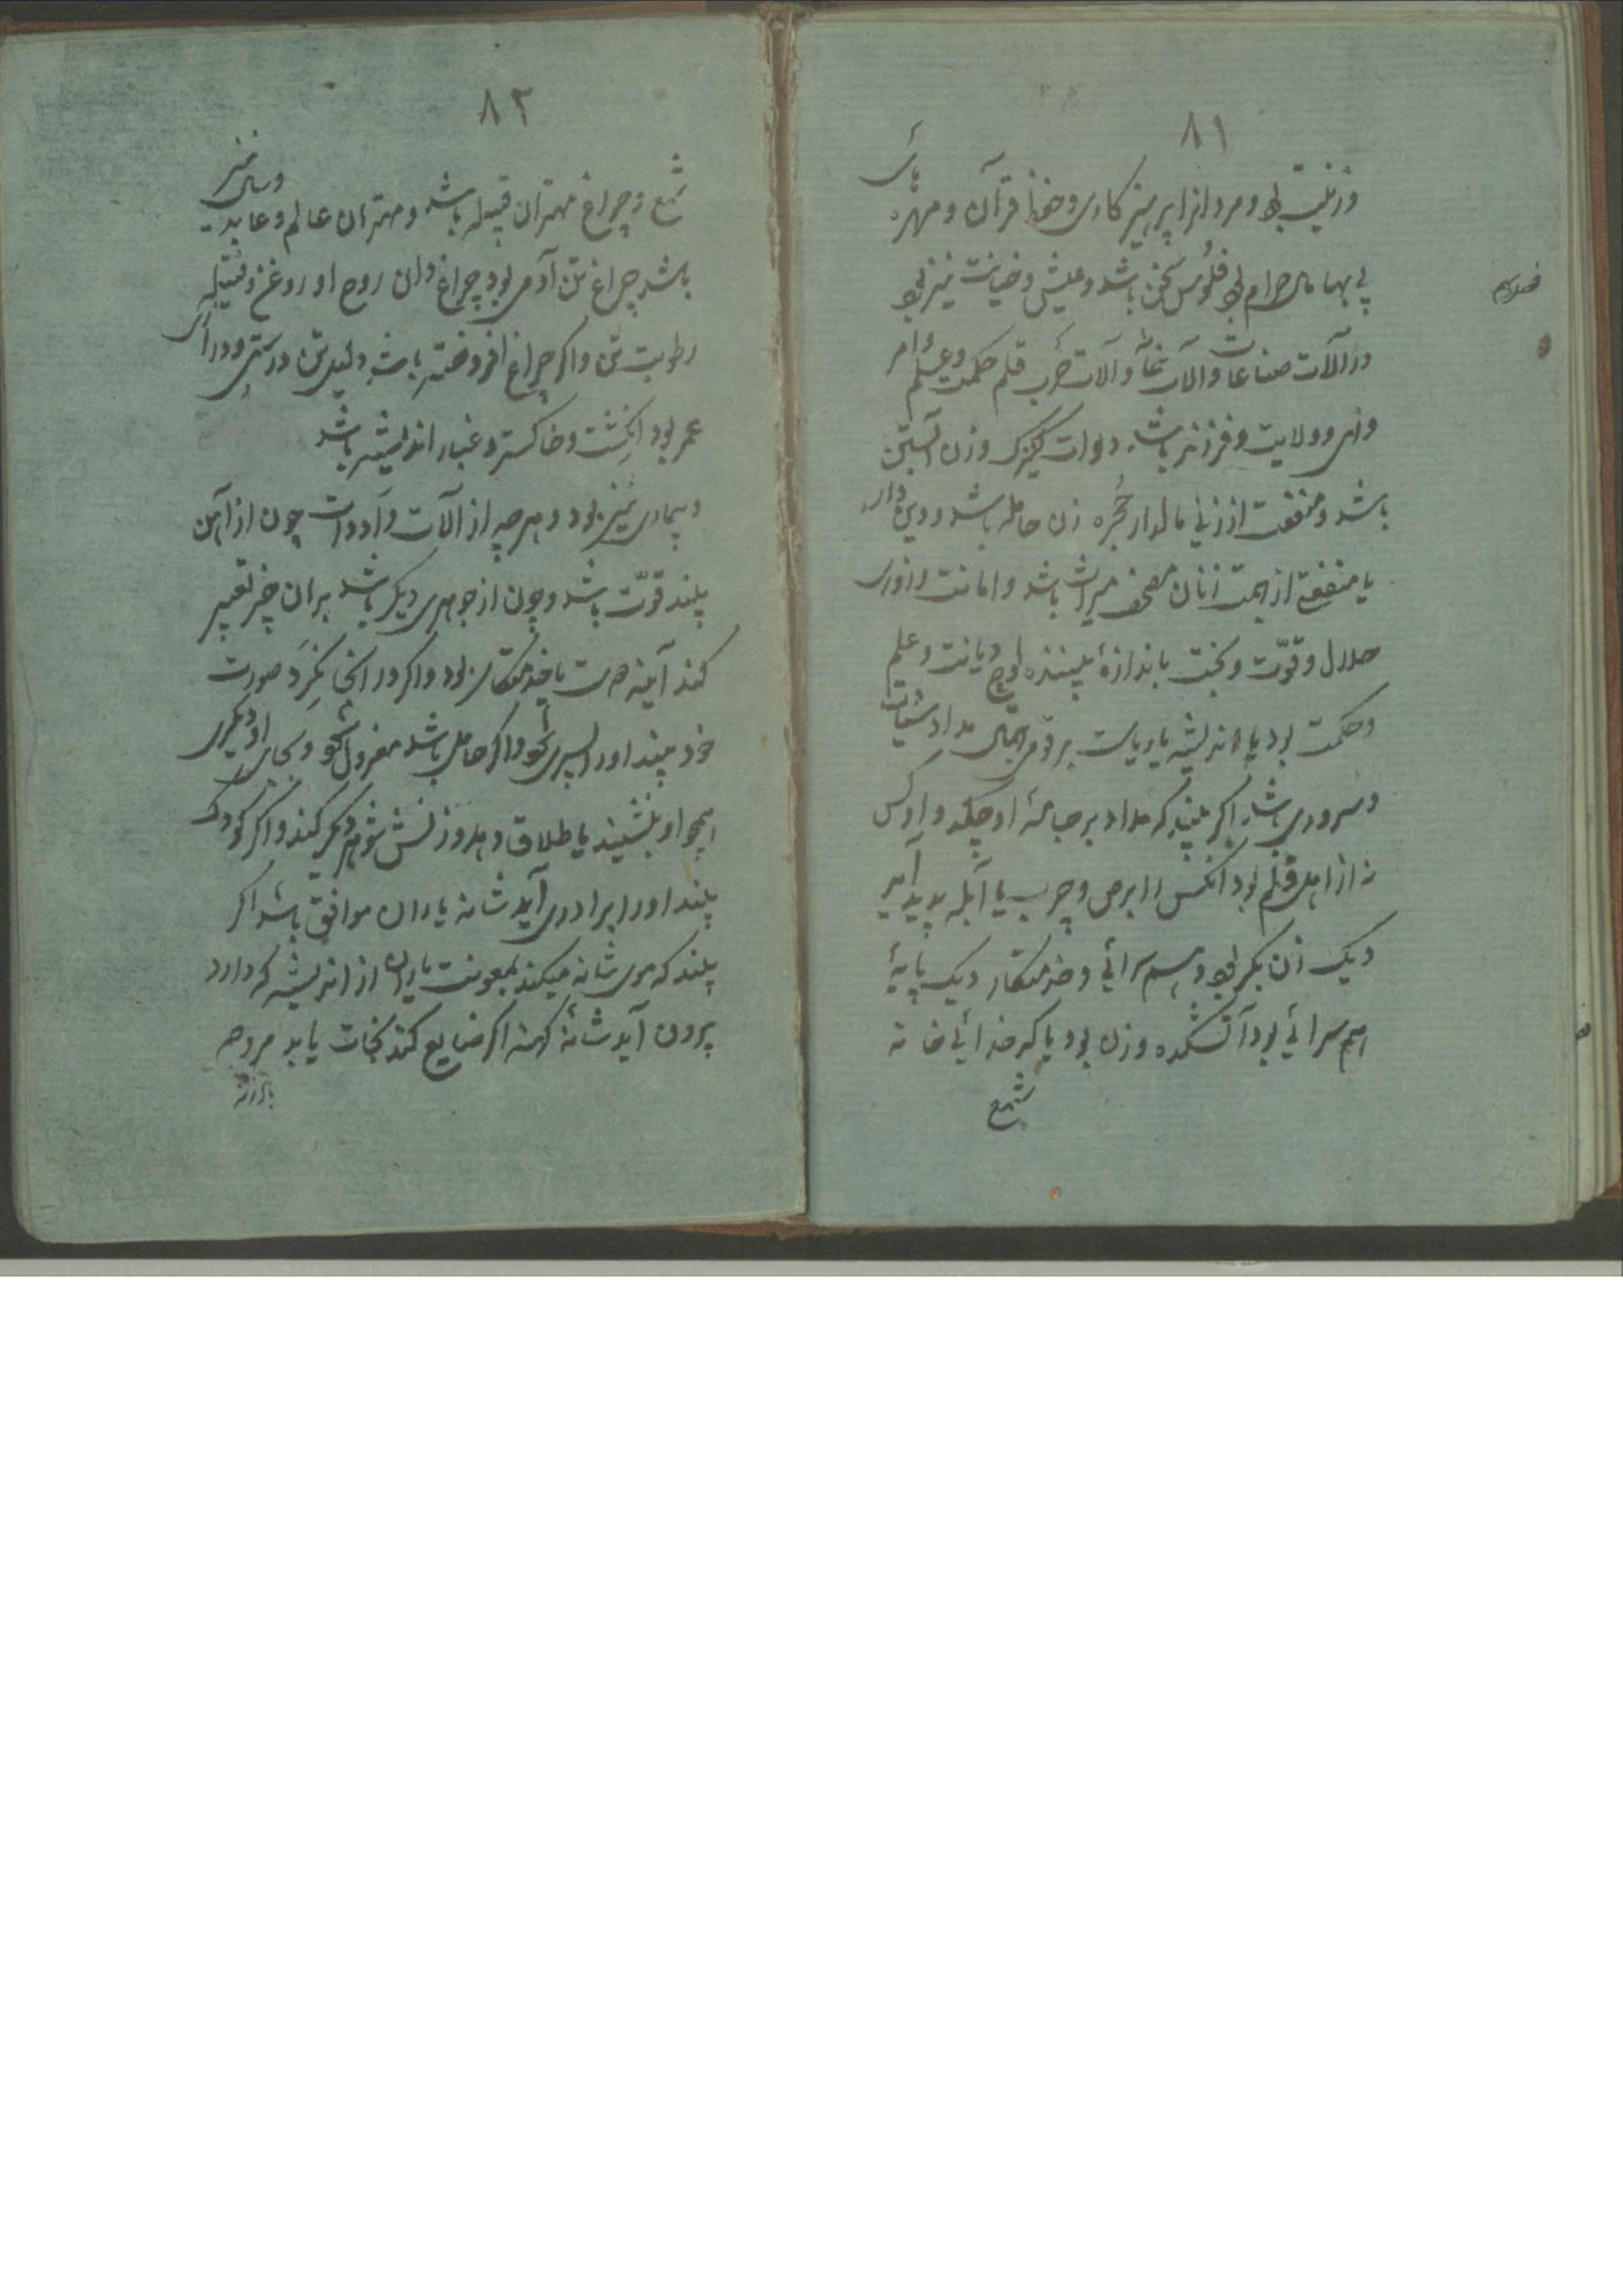 ۸۱
وزینت بود و مردانرا پرهیزکاری و حفظ قرآن و مهره هائی
بی بها مال حرام بود فلوس سخن باشد و عیش و خیانت نیز بود
در آلات صناعات و آلات غنا و آلات حرب قلم حکمت و علم و امر
و نهی و ولایت و فرزند باشد دوات کنیزک و زن آبستن
باشد و منفعت از زنی مالدار حجره زن حامله باشد و دین دار
یا منفعت از جهت زنان مصحف میراث باشد و امانت و روزی
حلال و قوّت و بخت باندازهٔ بیننده لوح دیانت و علم
و حکمت بود یا اندیشه یا ریاست بر قومی جهال مداد
و سروری باشد اگر بیند که مداد بر جامهٔ او چکد و او کس
نه از اهل قلم بود آنکس را برص و جرب یا آبله پدید آید
دیک زن بکر بود و هم سرائی و خدمتکار دیک پایهٔ
هم سرائی بود آتشکده و زن بود یا کدخدائی خانه
شمع
۸۲
شمع و چراغ مهتران قبیله باشد و مهتران عالم و عابد
باشد چراغ تن آدمی بود چراغ دان روح او روغن و فتیله
رطوبت تن و اگر چراغ افروخته باشد دلیل تن درستی و درازی
عمر بود انگشت و خاکستر و غبار اندیشه باشد
و بیماری نیز بود و هرچه از آلات و ادوات چون از آهن
بیند قوّت باشد و چون از جوهری دیگر باشد بران چیز تعبیر
کند آینه یا خدمتکار بود و اگر در آنجا نگرد صورت
خود بیند او را پسری شود و اگر حامل باشد معزول شود و بجای او دیگری
همچو او بنشیند یا طلاق دهد و زنش شوهر دیگر کند و اگر کودک
بیند او را برادری آید شانه یاران موافق باشد اگر
بیند که موی شانه میکند بمعونت یاران از اندیشه که دارد
بیرون آید شانهٔ کهنه اگر ضایع کند نجات یابد مروحه